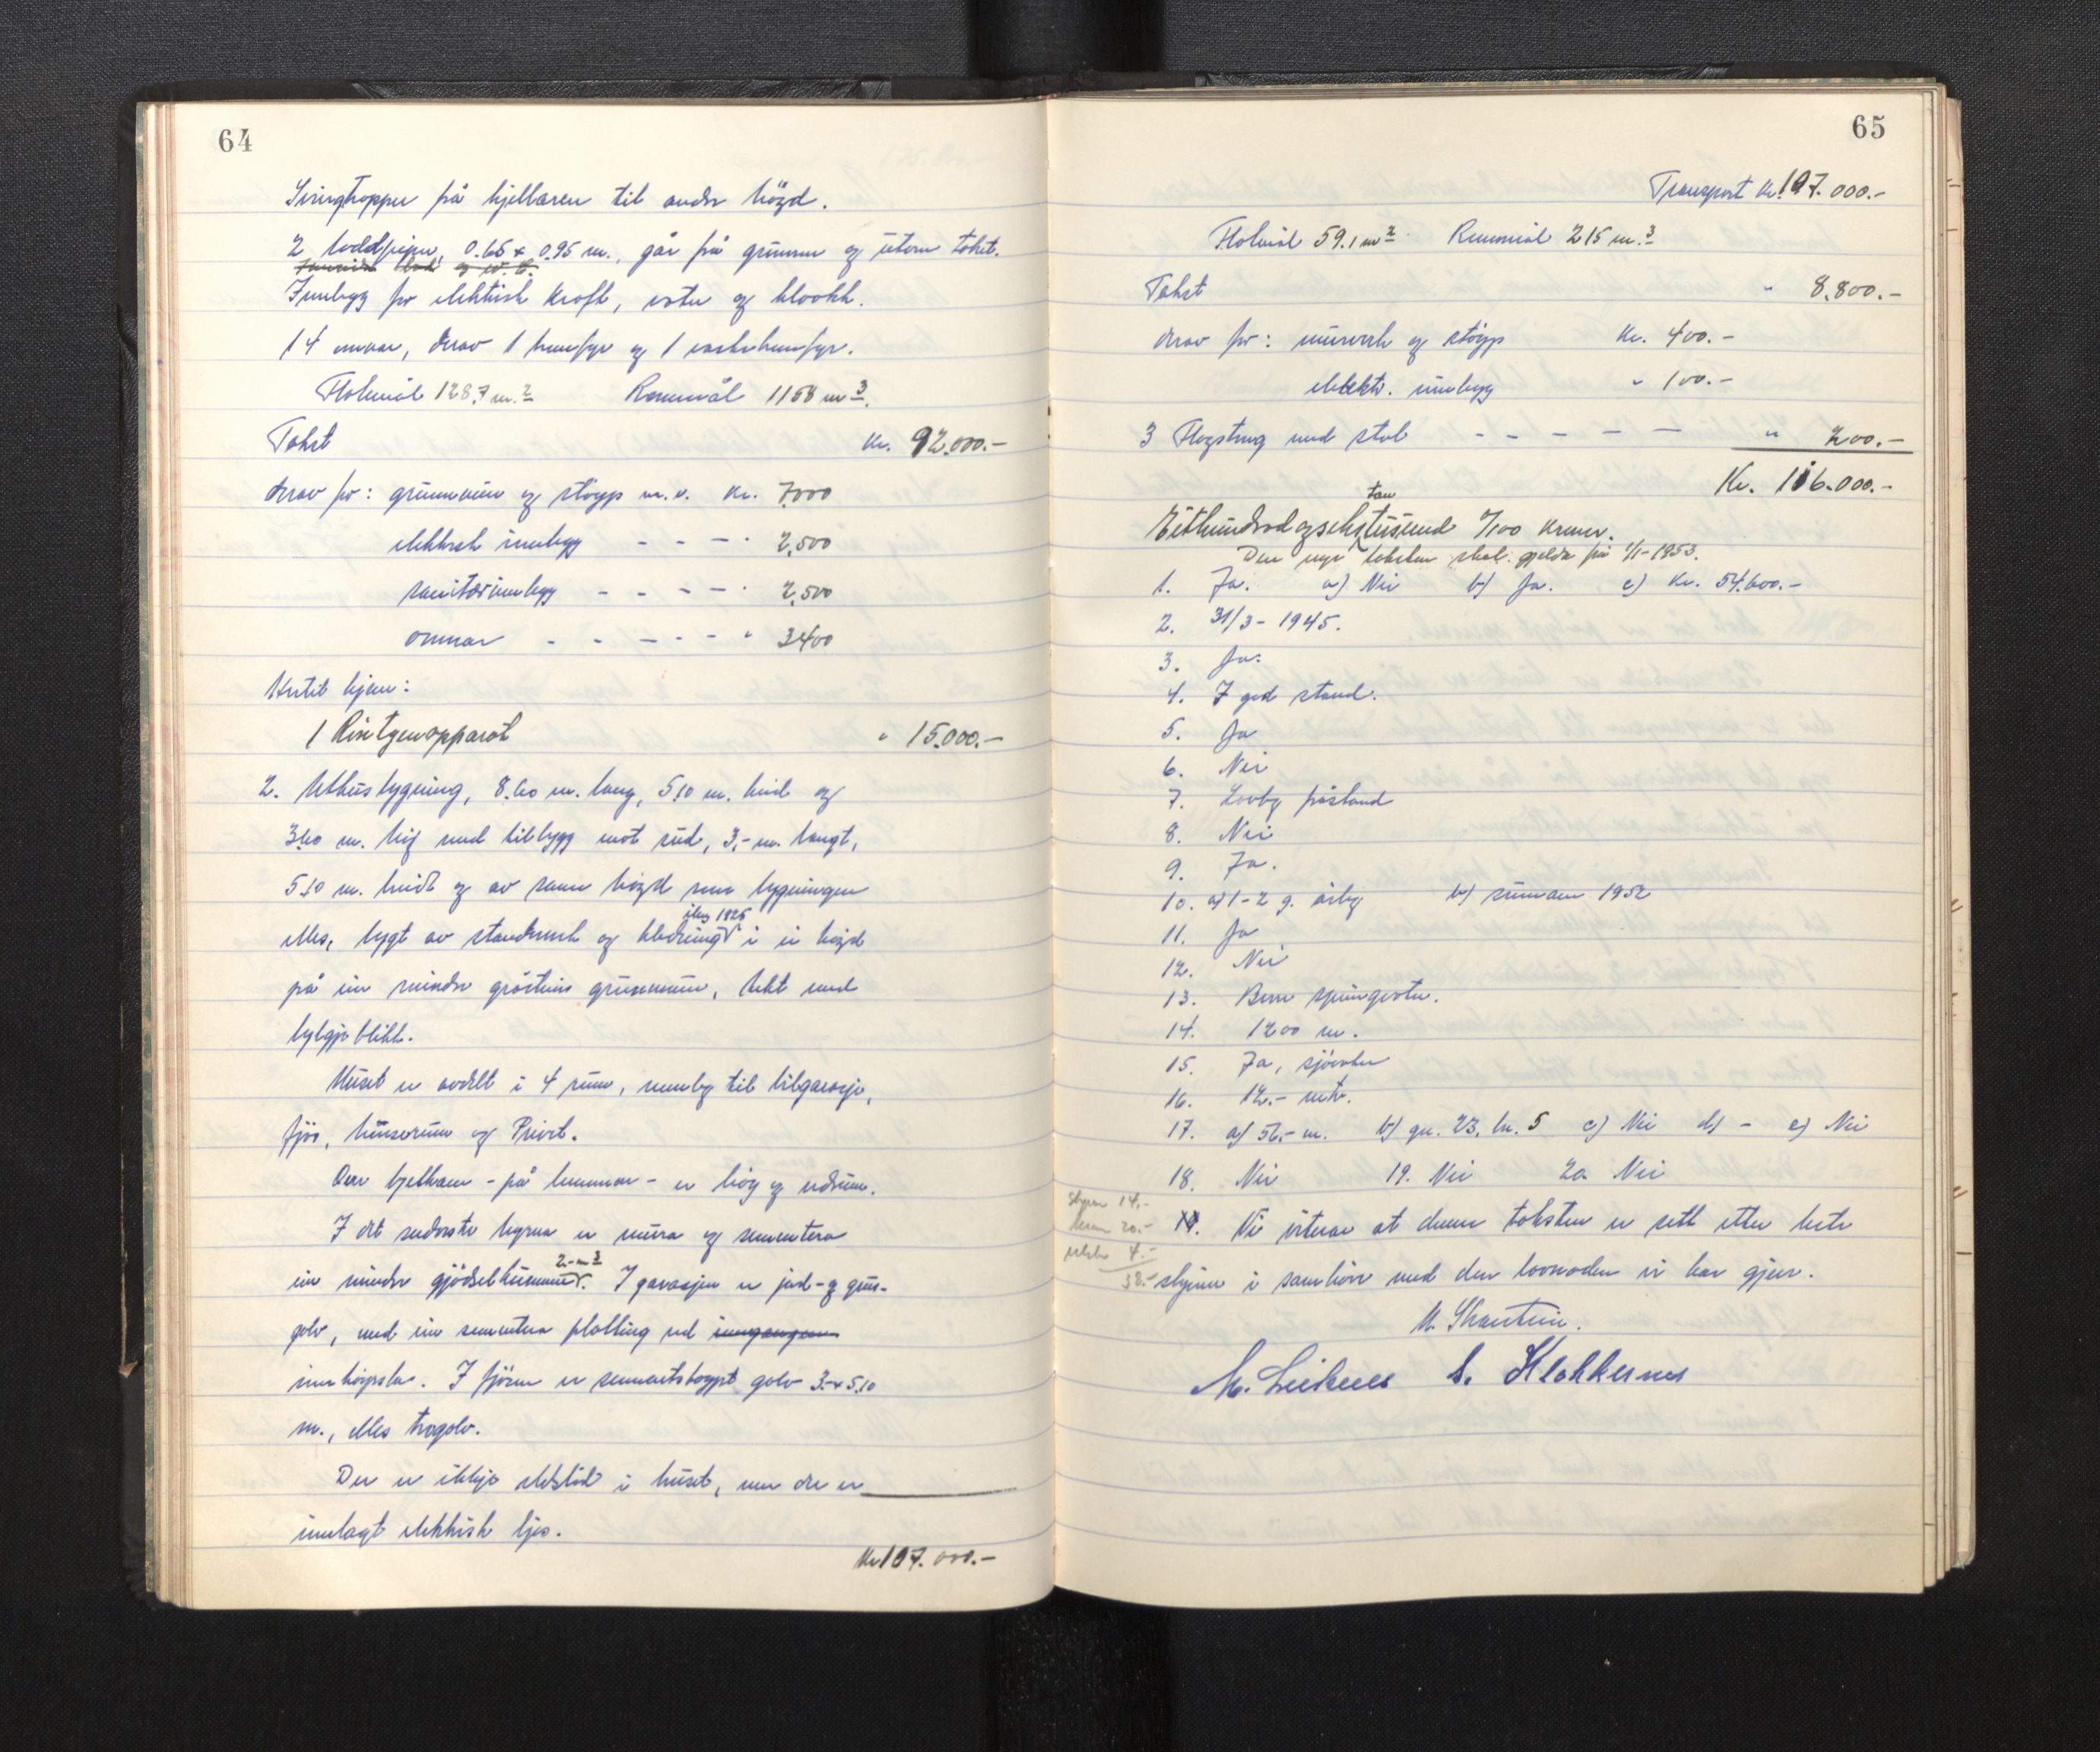 64
Svingtropper på kjellaren til andre högd.
2 loddpipur, 0.65 x 0.95 m., går frå grunnen og utom taket.
Innlegg for elektrisk kraft, vatn og kloakk.
14 omnar, derav 1 kumfyr og 1 vaskekumfyr.
Flatemål 128,7 m.2 Rummål 1158 m3.
Takst kr. 92.000.-
derav for: grunnmur og støyp m.v. kr. 7.000
elektrisk innlegg - - - " 2,500
sanitærinnlegg - - - - " 2,500
omnar - - - - - " 3400
Hertil kjem:
1 Røntgenapparat " 15.000.-
2. Uthusbygning, 8.60 m. lang, 5.10 m. breid og
3.40 m. høg med tilbygg mot sud, 3,- m. langt,
5.10 m. breidt og av same høgd som bygningen
elles, bygt av standverk og kledning i ei høgd
på ein mindre gråsteins grunnmur, tekt med
bylgjeblikk.
Huset er avdelt i 4 rum, nemleg til bilgarasje,
fjøs, hønserum og Privet.
Den bjelkane - på lemmen - er låg og
I det nedorste hyrna er mura og sementera
2.- m3
ein mindre gjødselkummur. I garasjen er jord- og grus-
golv, med ein sementera platting ved inngangen
innkøyrsla. I fjøsen er sementstøypt golv 3.- x 5.10
m., elles tregolv.
Der er ikkje eldstad i huset, men der er
innlagt elektrisk ljos.
Kr 107.000.-
65
Transport kr. 107.000.-
Flatemål 59.1 m2 Rummål 215 m.3
Takst " 8.800.-
derav for: murverk og støyp kr. 400.-
elektr. innlegg " 100.-
3 Flagstong med stol - - - - - " 200.-
Kr. 116.000.-
tan
Eithundrad og sekstusund 0/100 kroner.
Den nye taksten skal gjelda frå 1/1-1953.
1. Ja. a) Nei b) Ja. c) kr. 54.600.-
2. 31/3 - 1945.
3. Ja.
4. I god stand.
5. Ja
6. Nei
7. Lovleg påstand
8. Nei
9. Ja.
10. a) 1-2 g. årleg b) sumaren 1952
11. Ja
12. Nei
13. Berre springvatn.
14. 1200 m.
15. Ja, sjøvatn
16. 12.- mtr.
17. a) 56,- m. b) gn. 23, bn. 5 c) Nei d) - e) Nei
18. Nei 19. Nei 20. Nei
14.-
20.-
4.-
38.-
Vi vitnar at denne taksten er sett etter beste
skjøn i samhøve med den lovnaden vi har gjeve.
M. Skartun.
M. Leiknes S. Klokkernes